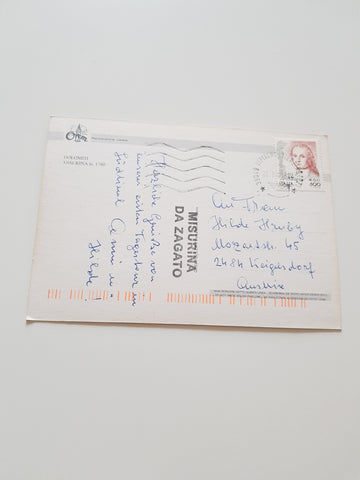 DOLOMITI
MISURINA m. 1760
Herzliche Grüße von
unserer ersten Tagestour in
Südtirol Anni u.
Hilde
MISURINA
DA ZAGATO
ITALIA
800
An Frau
Hilde Hruby
Mozartstr. 45
2484 Weigelsdorf
Austria